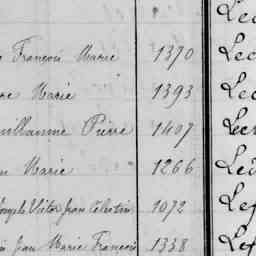 Lec
François Marie 1370 Lec
re Marie 1393 Lec
uillaume Pierre 1407 Lecr
n Marie 1266 Led
Joseph Victor Jean Célestin 1072 Lef
Jean Marie François 1338 Lef